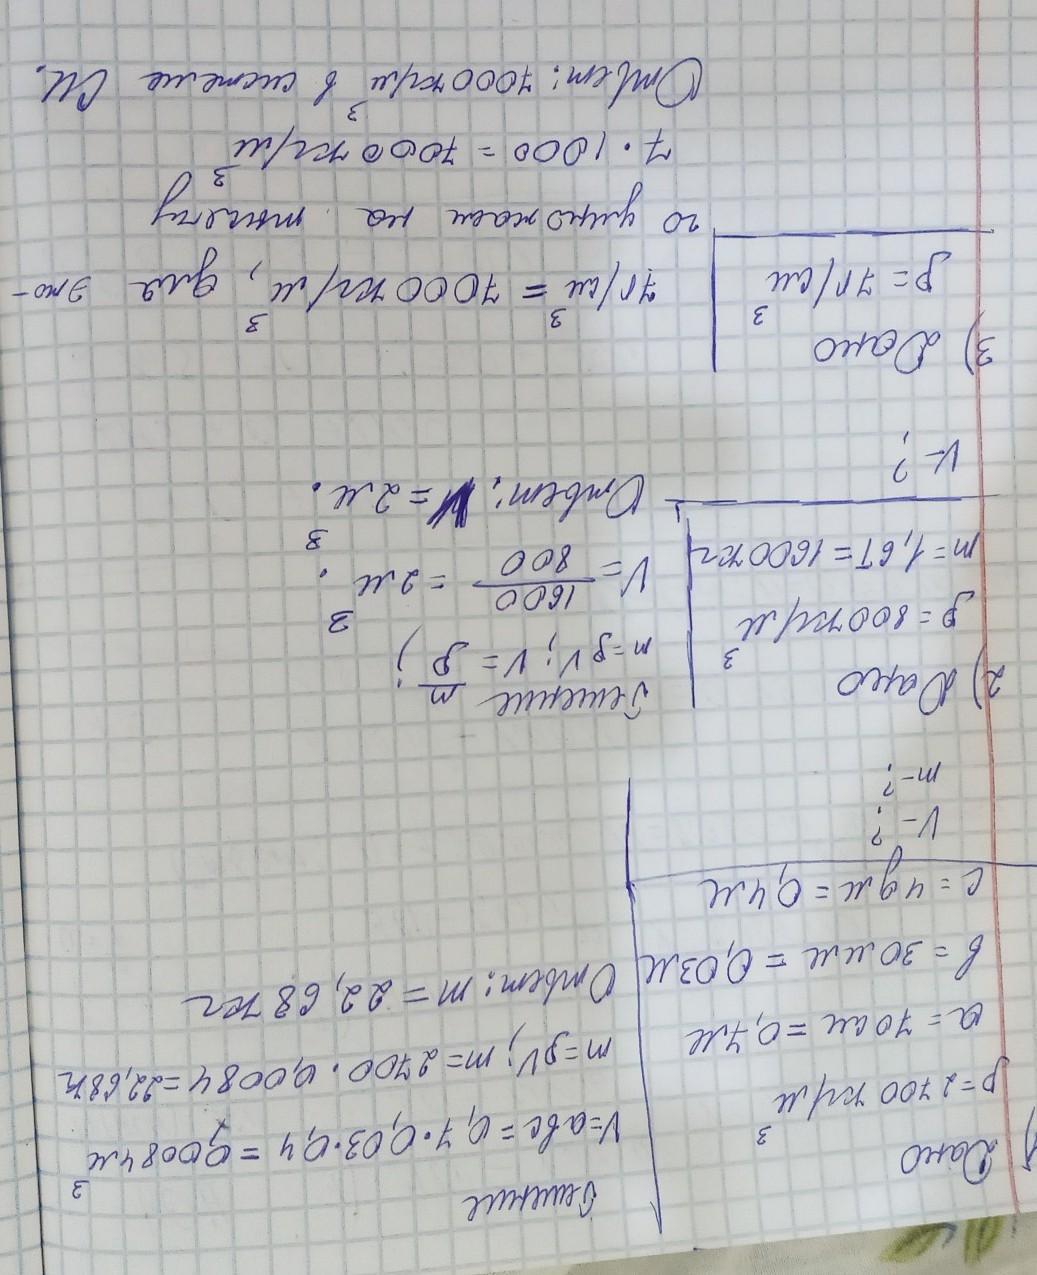 1) Дано
ρ=2700 кг/м³
a = 70см = 0,7м
b = 30мм = 0,03м
c = 4дм = 0,4м
V-?
m-?
Решение
V=abc=0,7·0,03·0,4=0,0084м³
m=ρV; m=2700·0,0084=22,68кг
Ответ: m=22,68кг
2) Дано
ρ=800кг/м³
m=1,6т=1600кг
V-?
Решение
m=ρV; V=m/ρ;
V=1600/800=2м³.
Ответ: V=2м³.
3) Дано
ρ=7г/см³
7г/см³=7000кг/м³, для это-
го умножаем на тысячу
7·1000=7000кг/м³
Ответ: 7000кг/м³ в системе СИ.